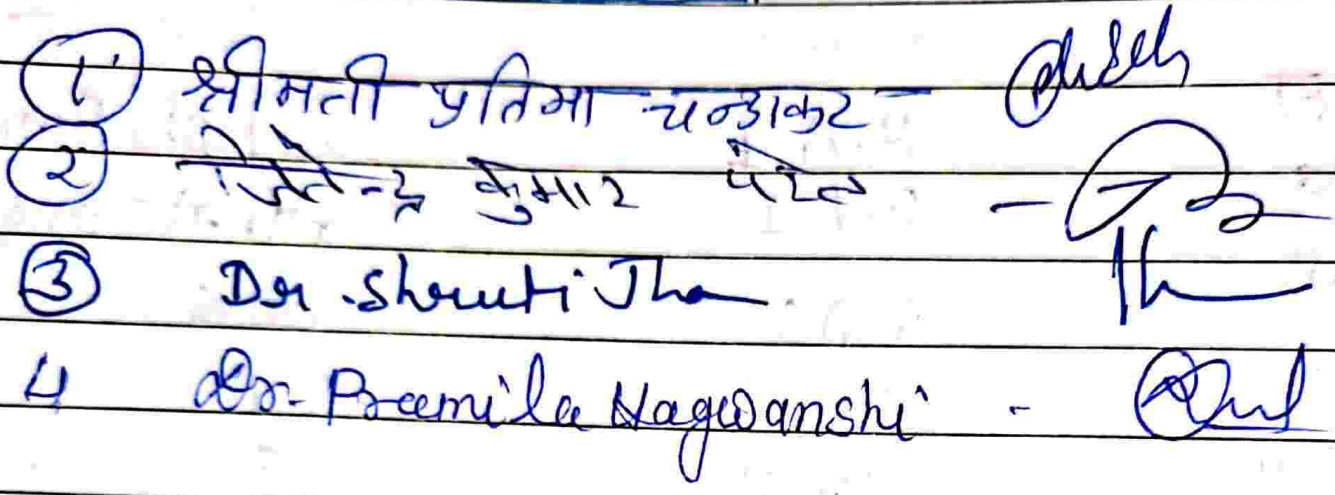 ① श्रीमती प्रतिमा चन्द्राकर -
② जितेन्द्र कुमार पटेल -
③ Dr. Shruti Jha
4 Dr. Pramila Nagwanshi -